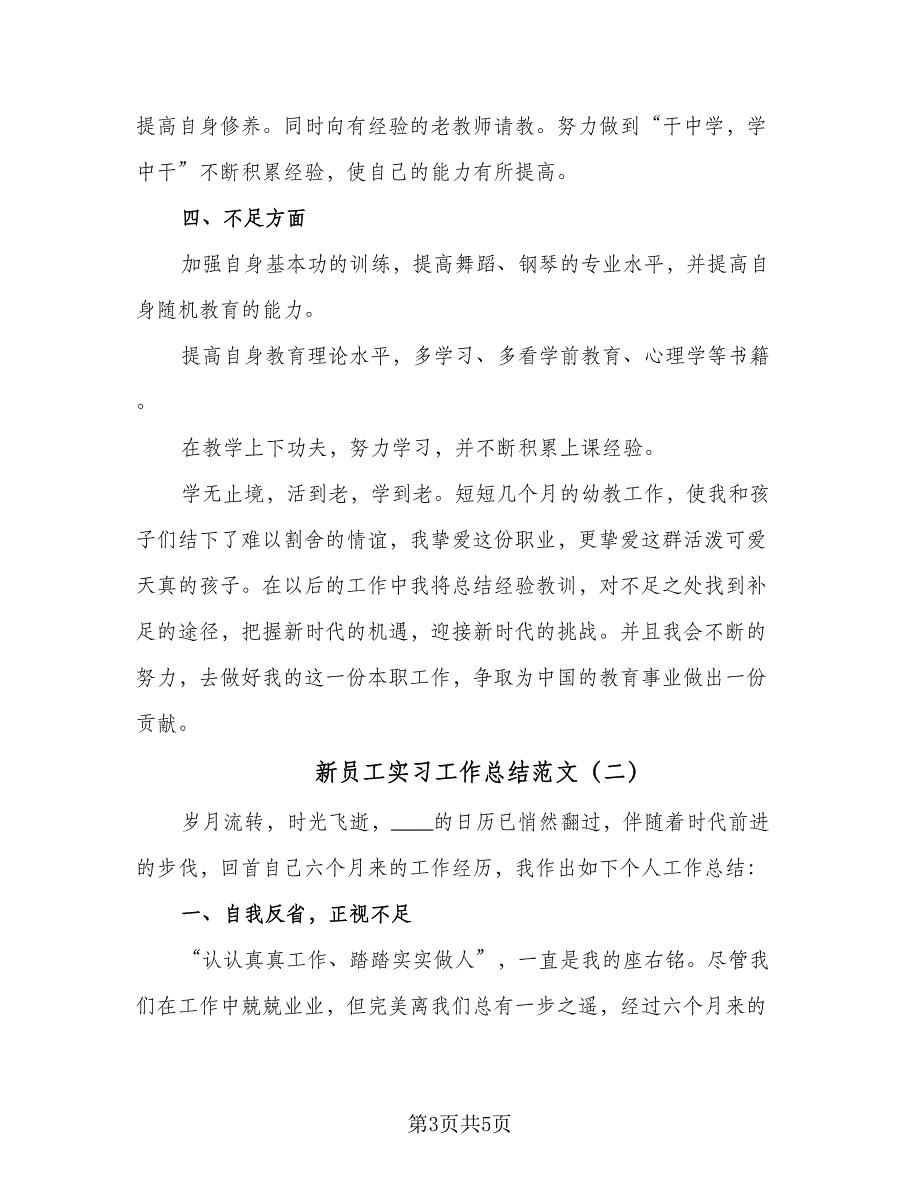 提高自身修养。同时向有经验的老教师请教。努力做到“干中学，学
中干”不断积累经验，使自己的能力有所提高。
四、不足方面
加强自身基本功的训练，提高舞蹈、钢琴的专业水平，并提高自
身随机教育的能力。
提高自身教育理论水平，多学习、多看学前教育、心理学等书籍
。
在教学上下功夫，努力学习，并不断积累上课经验。
学无止境，活到老，学到老。短短几个月的幼教工作，使我和孩
子们结下了难以割舍的情谊，我挚爱这份职业，更挚爱这群活泼可爱
天真的孩子。在以后的工作中我将总结经验教训，对不足之处找到补
足的途径，把握新时代的机遇，迎接新时代的挑战。并且我会不断的
努力，去做好我的这一份本职工作，争取为中国的教育事业做出一份
贡献。
新员工实习工作总结范文（二）
岁月流转，时光飞逝，____的日历已悄然翻过，伴随着时代前进
的步伐，回首自己六个月来的工作经历，我作出如下个人工作总结：
一、自我反省，正视不足
“认认真真工作、踏踏实实做人”，一直是我的座右铭。尽管我
们在工作中兢兢业业，但完美离我们总有一步之遥，经过六个月来的
第3页共5页